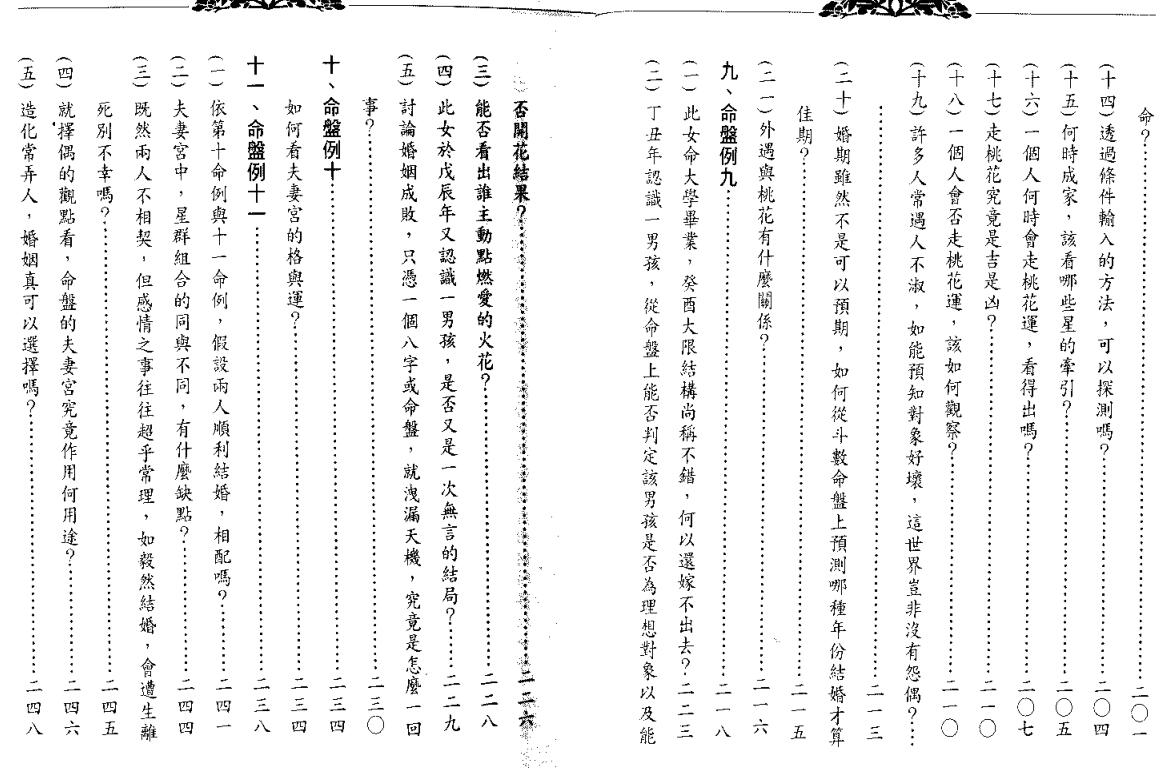 命？……二〇一
(十四)透過條件輸入的方法，可以探測嗎？……二〇四
(十五)何時成家，該看哪些星的牽引？……二〇五
(十六)一個人何時會走桃花運，看得出嗎？……二〇七
(十七)走桃花究竟是吉是凶？……二一〇
(十八)一個人會否走桃花運，該如何觀察？……二一〇
(十九)許多人常遇人不淑，如能預知對象好壞，這世界豈非沒有怨偶？……
……二一三
(二十)婚期雖然不是可以預期，如何從斗數命盤上預測哪種年份結婚才算
佳期？……二一五
(二一)外遇與桃花有什麼關係？……二一六
九、命盤例九……二一八
(一)此女命大學畢業，癸酉大限結構尚稱不錯，何以還嫁不出去？二二三
(二)丁丑年認識一男孩，從命盤上能否判定該男孩是否為理想對象以及能
否開花結果？……二二六
(三)能否看出誰主動點燃愛的火花？……二二八
(四)此女於戊辰年又認識一男孩，是否又是一次無言的結局？……二二九
(五)討論婚姻成敗，只憑一個八字或命盤，就洩漏天機，究竟是怎麼一回
事？……二三〇
十、命盤例十……二三四
如何看夫妻宮的格與運？……二三四
十一、命盤例十一……二三八
(一)依第十命例與十一命例，假設兩人順利結婚，相配嗎？……二四一
(二)夫妻宮中，星群組合的同與不同，有什麼缺點？……二四四
(三)既然兩人不相契，但感情之事往往超乎常理，如毅然結婚，會遭生離
死別不幸嗎？……二四五
(四)就擇偶的觀點看，命盤的夫妻宮究竟作用何用途？……二四六
(五)造化常弄人，婚姻真可以選擇嗎？……二四八